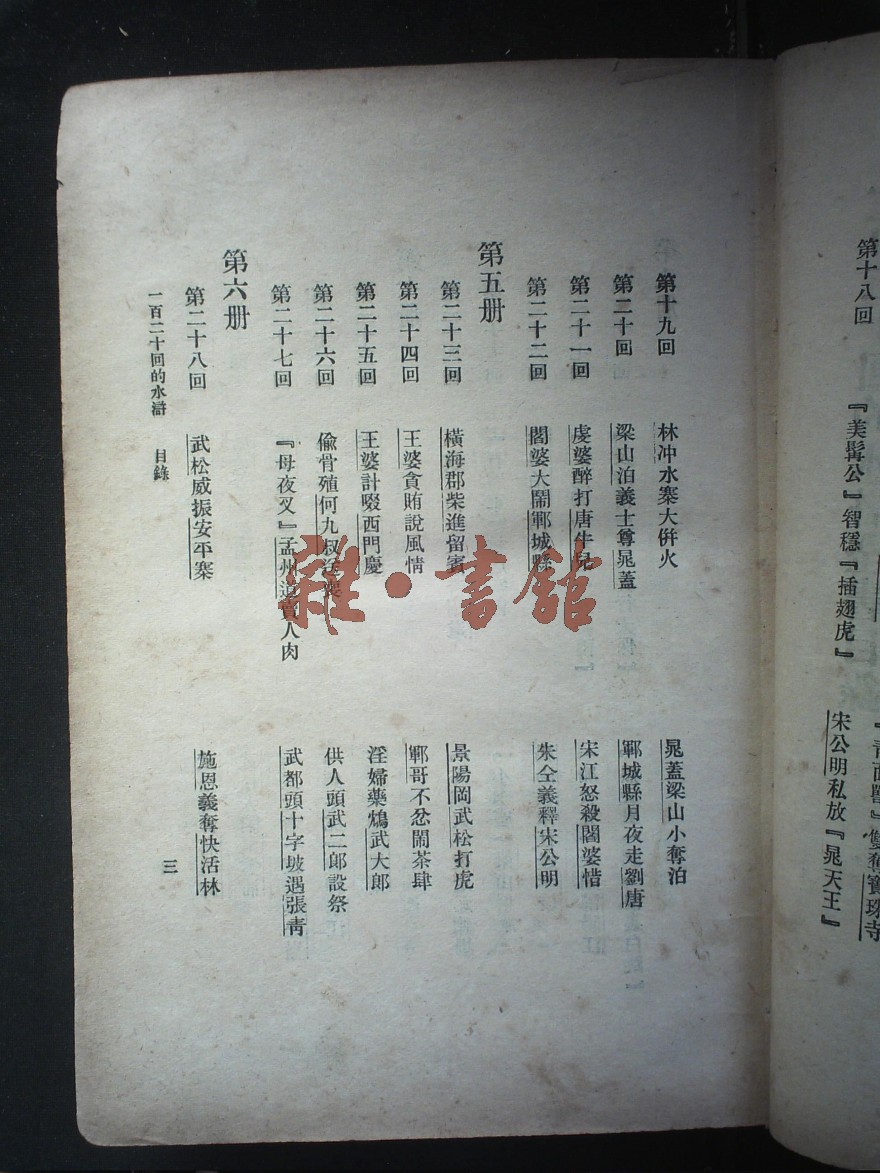 第十八回 『美髯公』智穩『插翅虎』 宋公明私放『晁天王』
雙奪寶珠寺
第十九回 林冲水寨大併火 晁蓋梁山小奪泊
第二十回 梁山泊義士尊晁蓋 鄆城縣月夜走劉唐
第二十一回 虔婆醉打唐牛兒 宋江怒殺閻婆惜
第二十二回 閻婆大鬧鄆城縣 朱仝義釋宋公明
第五册
第二十三回 橫海郡柴進留賓 景陽岡武松打虎
第二十四回 王婆貪賄說風情 鄆哥不忿鬧茶肆
第二十五回 王婆計啜西門慶 淫婦藥鴆武大郎
第二十六回 偷骨殖何九叔送喪 供人頭武二郎設祭
第二十七回 『母夜叉』孟州道賣人肉 武都頭十字坡遇張青
第六册
第二十八回 武松威振安平寨 施恩義奪快活林
一百二十回的水滸 目錄 三
雜·書舘